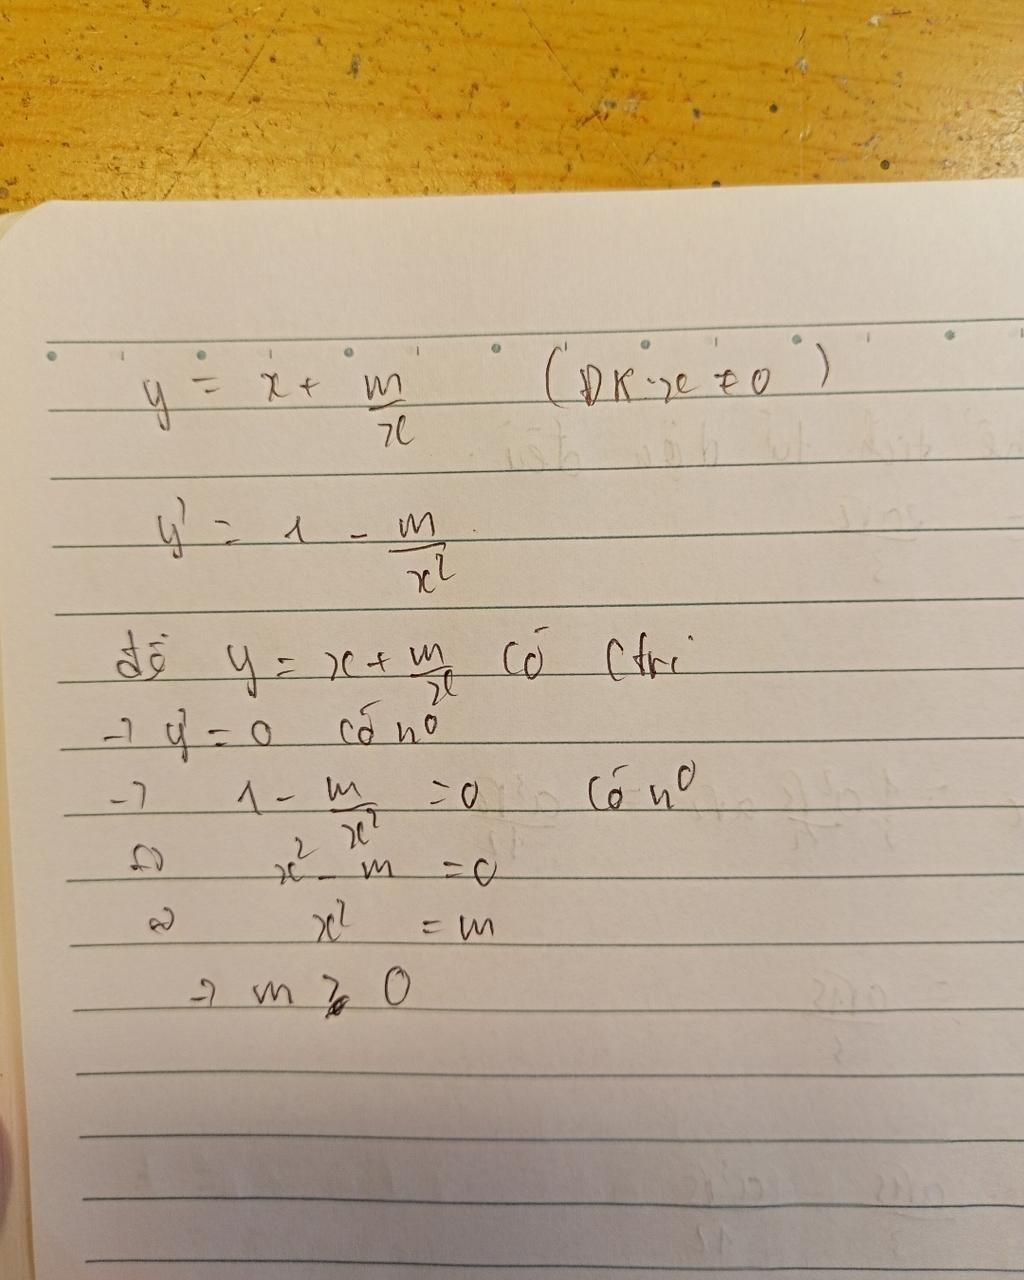 y = x + m/x (ĐK: x ≠ 0)
y' = 1 - m/x²
để y = x + m/x có Ctrị
→ y' = 0 có n⁰
→ 1 - m/x² = 0 có n⁰
⇔ x² - m = 0
⇔ x² = m
→ m > 0